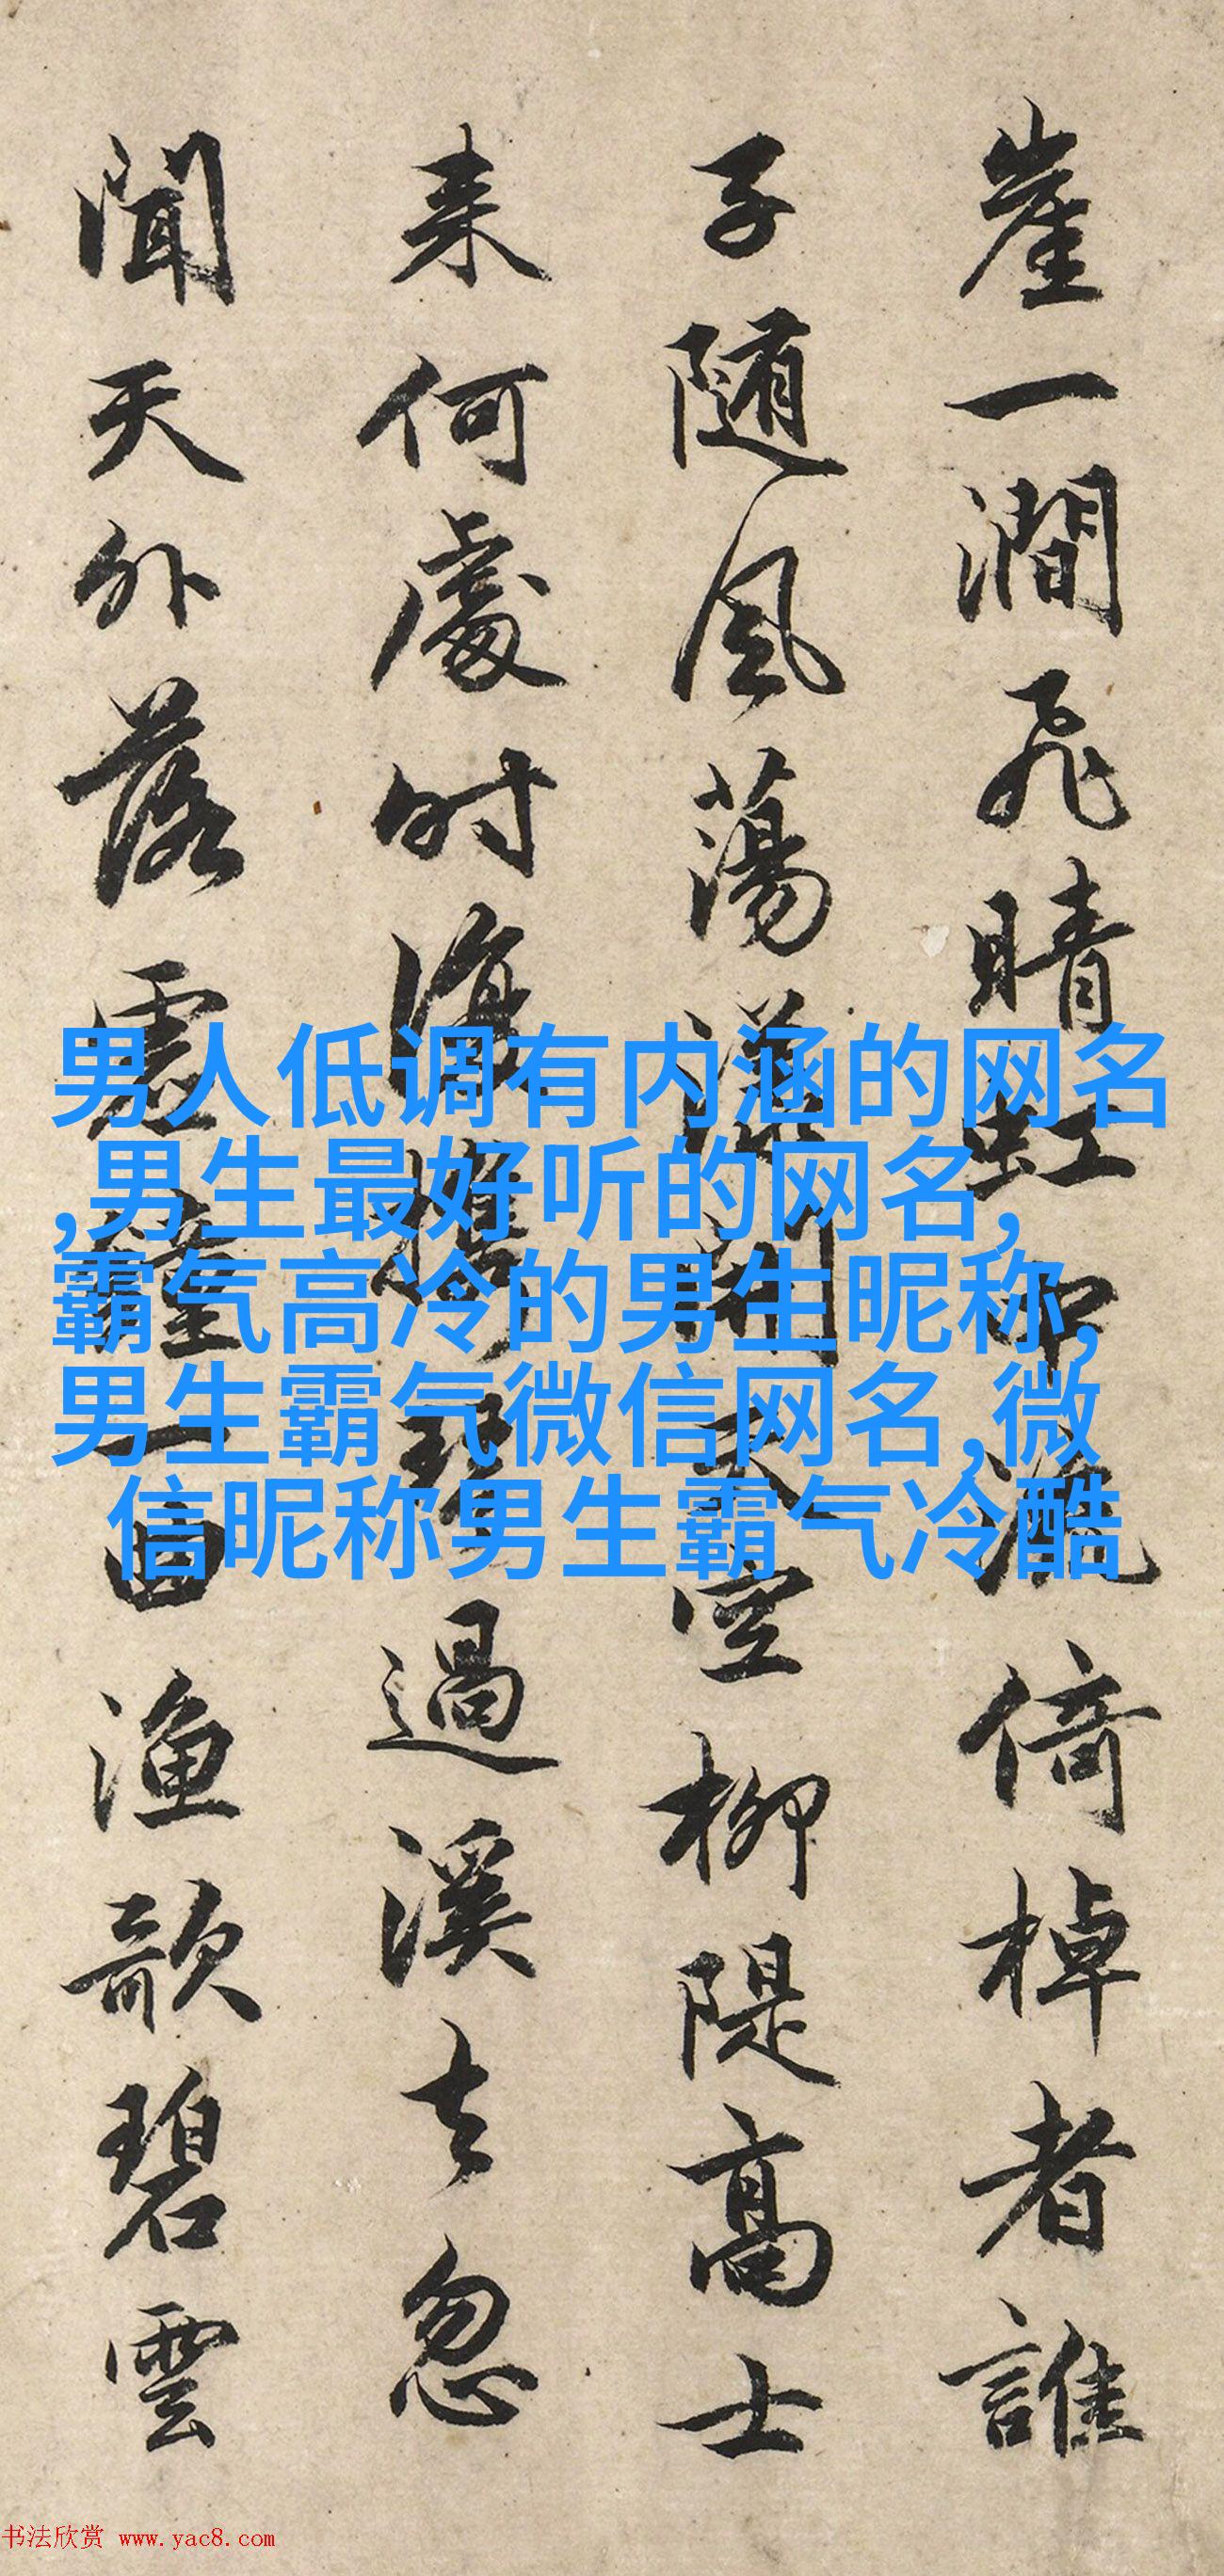 崖一澗飛晴虹中流倚棹者誰
子随風蕩漾開天空柳隄高士
来何處時復攜琴過溪去忽
聞天外落一曲漁歌碧雲
男人低调有内涵的网名
,男生最好听的网名,
霸气高冷的男生昵称,
男生霸气微信网名,微
信昵称男生霸气冷酷
书法欣赏 www.yac8.com